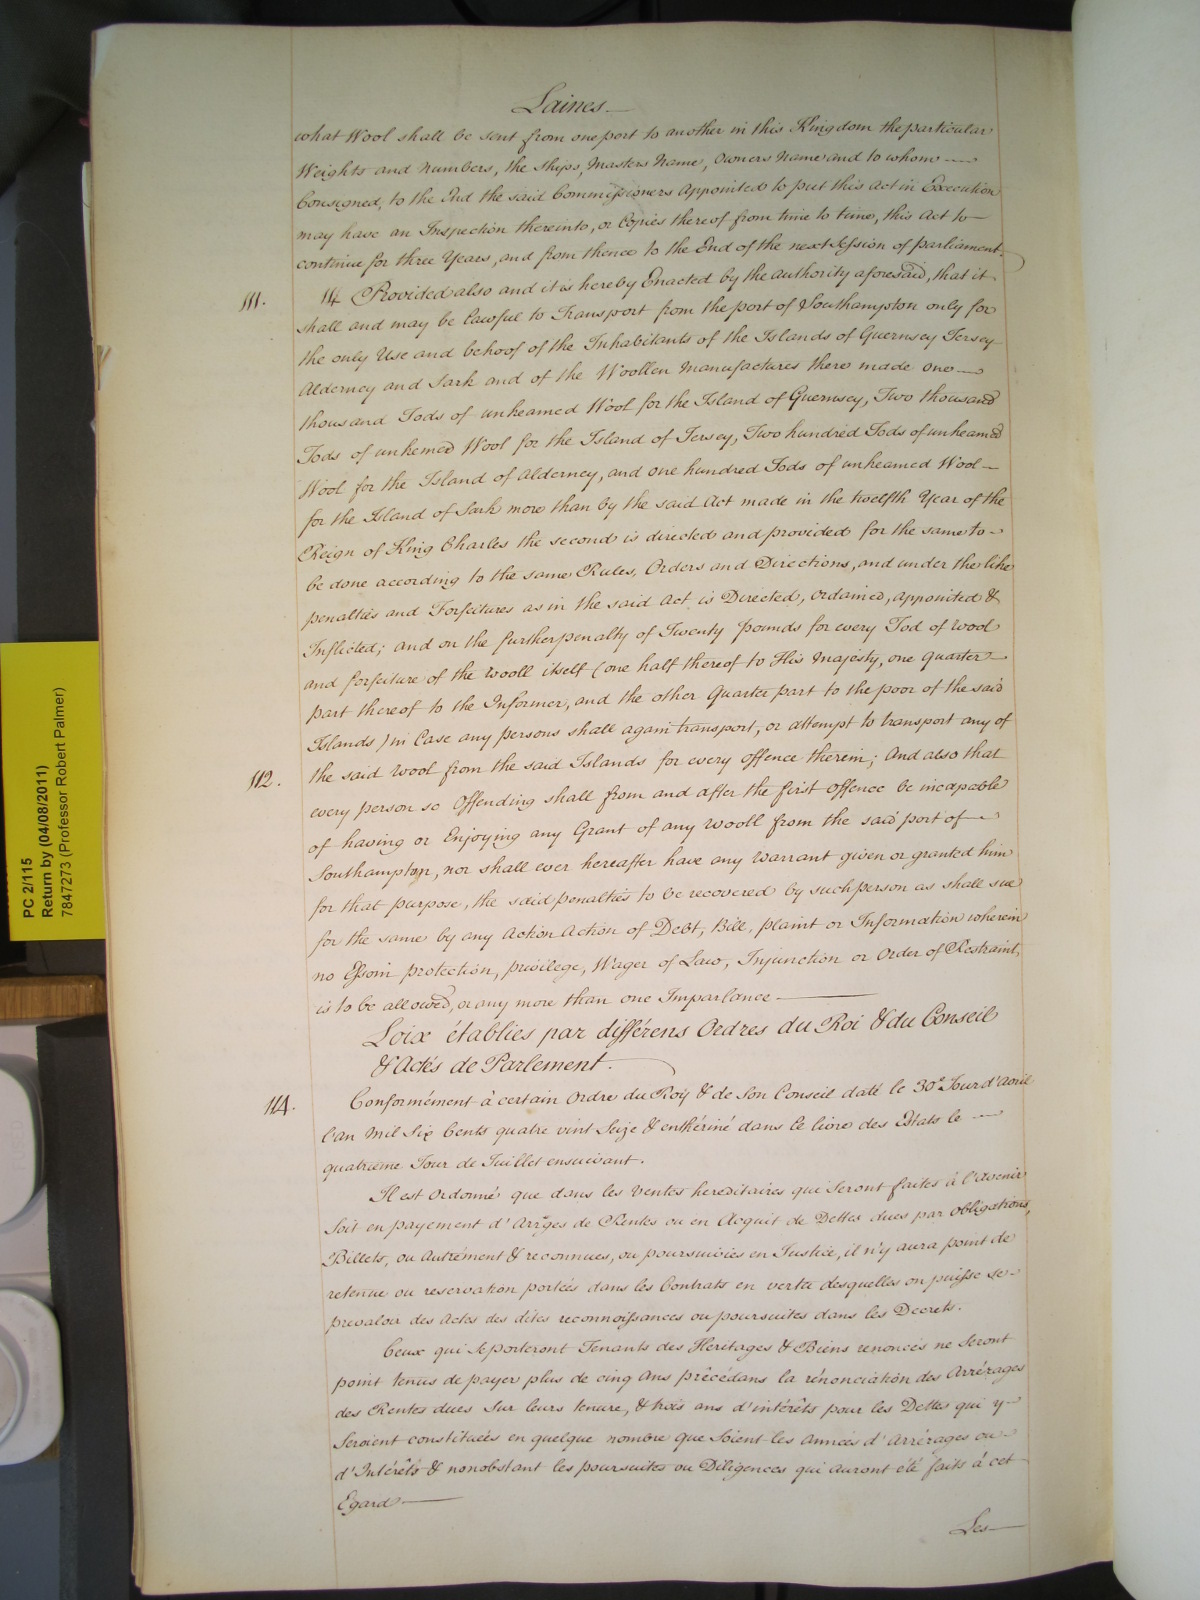 Laines
what Wool shall be sent from one port to another in this Kingdom the particular
Weights and Numbers, the Ships, Masters Name, Owners Name and to whom
Consigned, to the End the said Commissioners Appointed to put this Act in Execution
may have an Inspection thereinto, or Copies thereof from time to time, this Act to
continue for three Years, and from thence to the End of the next Session of parliament.
111. 114 Provided also and it is hereby Enacted by the authority aforesaid, that it
shall and may be Lawful to Transport from the port of Southampton only for
the only Use and behoof of the Inhabitants of the Islands of Guernsey Jersey
Alderney and Sark and of the Woollen Manufactures there made one
thousand Tods of unheamed Wool for the Island of Guernsey, Two thousand
Tods of unkemed Wool for the Island of Jersey, Two hundred Tods of unheamed
Wool for the Island of Alderney, and one hundred Tods of unheamed Wool
for the Island of Sark more than by the said Act made in the twelfth Year of the
Reign of King Charles the second is directed and provided for the same to
be done according to the same Rules, Orders and Directions, and under the like
penalties and Forfeitures as in the said Act is Directed, ordained, appointed &
Inflicted; and on the further penalty of Twenty pounds for every Tod of wool
and forfeiture of the wooll itself (one half thereof to His Majesty, one quarter
part thereof to the Informer, and the other Quarter part to the poor of the said
Islands) in Case any persons shall again transport, or attempt to transport any of
the said wool from the said Islands for every offence therein; And also that
112. every person so Offending shall from and after the first offence be incapable
of having or Enjoying any Grant of any wooll from the said port of
Southampton, nor shall ever hereafter have any warrant given or granted him
for that purpose, the said penalties to be recovered by such person as shall sue
for the same by any Action Action of Debt, Bill, plaint or Information wherein
no Essoin protection, privilege, Wager of Law, Injunction or Order of Restraint,
is to be allowed, or any more than one Imparlance
Loix établies par différens Ordres du Roi & du Conseil
& Actés de Parlement.
114. Conformément à certain Ordre du Roÿ & de Son Conseil daté le 30e Jour d'Avril
l'an Mil Six Cents quatre vint Seize & enthériné dans le livre des Etats le
quatrieme Jour de Juillet ensuivant.
Il est ordonné que dans les Ventes hereditaires qui Seront faites à l'avenir
Soit en payement d'Arrges de Rentes ou en Acquit de Dettes dues par obligations,
Billets, ou Autrement & reconnues, ou poursuivies en Justice, il n'y aura point de
retenue ou reservation portées dans les Contrats en vertu desquelles on puisse se
prevaloir des Actes des dites reconnoissances ou poursuites dans les Decrets.
Ceux qui Se porteront Tenants des Heritages & Biens renoncés ne Seront
point tenus de payer plus de cinq Ans précédans la rénonciation des Arrérages
des Rentes dues Sur leurs tenure, & trois ans d'intérêts pour les Dettes qui y
Seroient constituées en quelque nombre que Soient les Années d'Arrérages ou
d'Intérêts & nonobstant les poursuites ou Diligences qui auront été faits à cet
Egard
Les
PC 2/115
Return by (04/08/2011)
7847273 (Professor Robert Palmer)